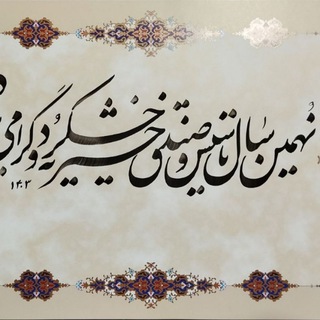 نهمین سال تاسیس صندوق خیریه خشکرود گرامی
۱۴۰۲